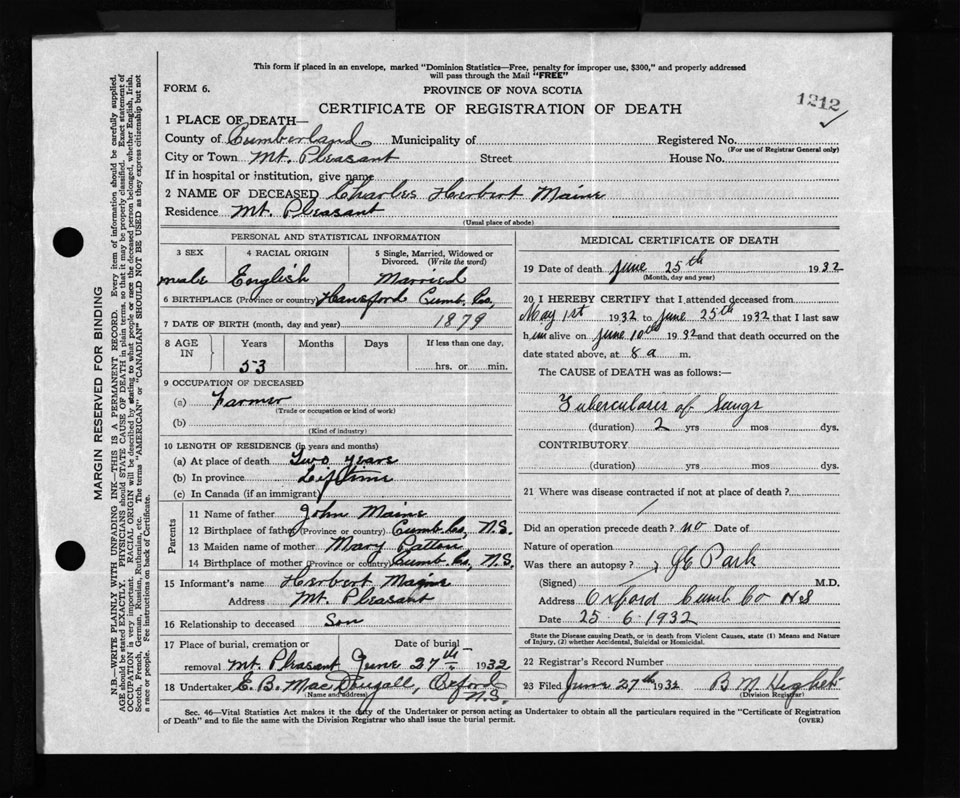 This form if placed in an envelope, marked "Dominion Statistics—Free, penalty for improper use, $300," and properly addressed
will pass through the Mail "FREE"
FORM 6.
PROVINCE OF NOVA SCOTIA
CERTIFICATE OF REGISTRATION OF DEATH
1212
1 PLACE OF DEATH—
County of Cumberland Municipality of Registered No.
(For use of Registrar General only)
City or Town Mt. Pleasant Street House No.
If in hospital or institution, give name
2 NAME OF DECEASED Charles Herbert Maine
Residence Mt. Pleasant
(Usual place of abode)
PERSONAL AND STATISTICAL INFORMATION
3 SEX 4 RACIAL ORIGIN 5 Single, Married, Widowed or
Divorced. (Write the word)
male English Married
6 BIRTHPLACE (Province or country) Hansford Cumb. Co,
7 DATE OF BIRTH (month, day and year) 1879
8 AGE IN Years Months Days If less than one day,
53 hrs. or min.
9 OCCUPATION OF DECEASED
(a) Farmer
(Trade or occupation or kind of work)
(b)
(Kind of industry)
10 LENGTH OF RESIDENCE (in years and months)
(a) At place of death Two years
(b) In province Lifetime
(c) In Canada (if an immigrant)
Parents
11 Name of father John Maine
12 Birthplace of father (Province or country) Cumb. Co, N.S.
13 Maiden name of mother Mary Patton
14 Birthplace of mother (Province or country) Cumb. Co, N.S.
15 Informant's name Herbert Maine
Address Mt. Pleasant
16 Relationship to deceased Son
17 Place of burial, cremation or Date of burial
removal Mt. Pleasant June 27th 1932
18 Undertaker E. B. MacDougall, Oxford N.S.
(Name and address)
MEDICAL CERTIFICATE OF DEATH
19 Date of death June 25th 1932
(Month, day and year)
20 I HEREBY CERTIFY that I attended deceased from
May 1st 1932 to June 25th 1932 that I last saw
him alive on June 10th 1932 and that death occurred on the
date stated above, at 8 a m.
The CAUSE of DEATH was as follows:—
Tuberculoses of Lungs
(duration) 2 yrs mos dys.
CONTRIBUTORY
(duration) yrs mos dys.
21 Where was disease contracted if not at place of death?
Did an operation precede death? no Date of
Nature of operation
Was there an autopsy?
(Signed) Park M.D.
Address Oxford Cumb Co NS
Date 25 6 1932
State the Disease causing Death, or in death from Violent Causes, state (1) Means and Nature
of Injury, (2) whether Accidental, Suicidal or Homicidal.
22 Registrar's Record Number
23 Filed June 27th 1932 B M
(Division Registrar)
Sec. 46—Vital Statistics Act makes it the duty of the Undertaker or person acting as Undertaker to obtain all the particulars required in the "Certificate of Registration
of Death" and to file the same with the Division Registrar who shall issue the burial permit.
(OVER)
MARGIN RESERVED FOR BINDING
N.B.—WRITE PLAINLY WITH UNFADING INK—THIS IS A PERMANENT RECORD. Every item of information should be carefully supplied.
AGE should be stated EXACTLY. PHYSICIANS should STATE CAUSE OF DEATH in plain terms, so that it may be properly classified. Exact statement of
OCCUPATION is very important. RACIAL ORIGIN will be described by stating to what people or race the deceased person belonged, whether English, Irish,
Scotch, French, German, Russian, Ruthenian, etc. The terms "AMERICAN" or "CANADIAN" SHOULD NOT BE USED as they express citizenship but not
a race or people. Fee instructions on back of Certificate.